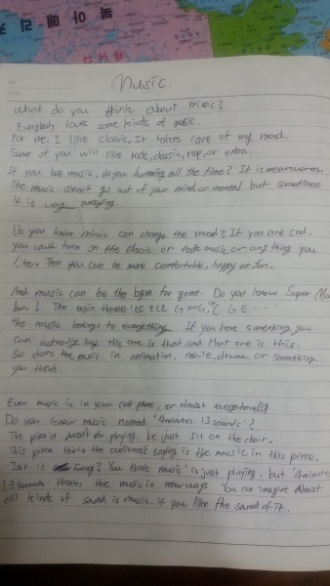 Music.
What do you think about music?
Everybody loves some kinds of music.
For me, I like classic. It takes care of my mood.
Some of you will like rock, classic, rap, or extra.
If you hear music, do you humming all the time? It is mearworm.
The music cannot go out of your mind or mental but sometimes
it is very annoying.
Do you know music can change the mood? If you are sad,
you could turn on the classic or rock music or anything you
like. Then you can be more comfortable, happy or fun.
And music can be the bgm for game. Do you know Super Ma
The main theme
the music belongs to everything. If you hear something you
can actually say this one is that and that one is this.
So does the music in animation, movie, drama, or something
you think.
Even music is in your cell phone, or almost everything
Do you know music named '4minutes 13seconds'?
The pianist doesn't do playing, he just sit on the chair.
This piece the audiences saying is the music in this piece.
Isn't it funny? You think music is just playing, but '4minutes
13seconds' the music in new ways. You can imagine almost
all kinds of sound is music, if you like the sound of it.